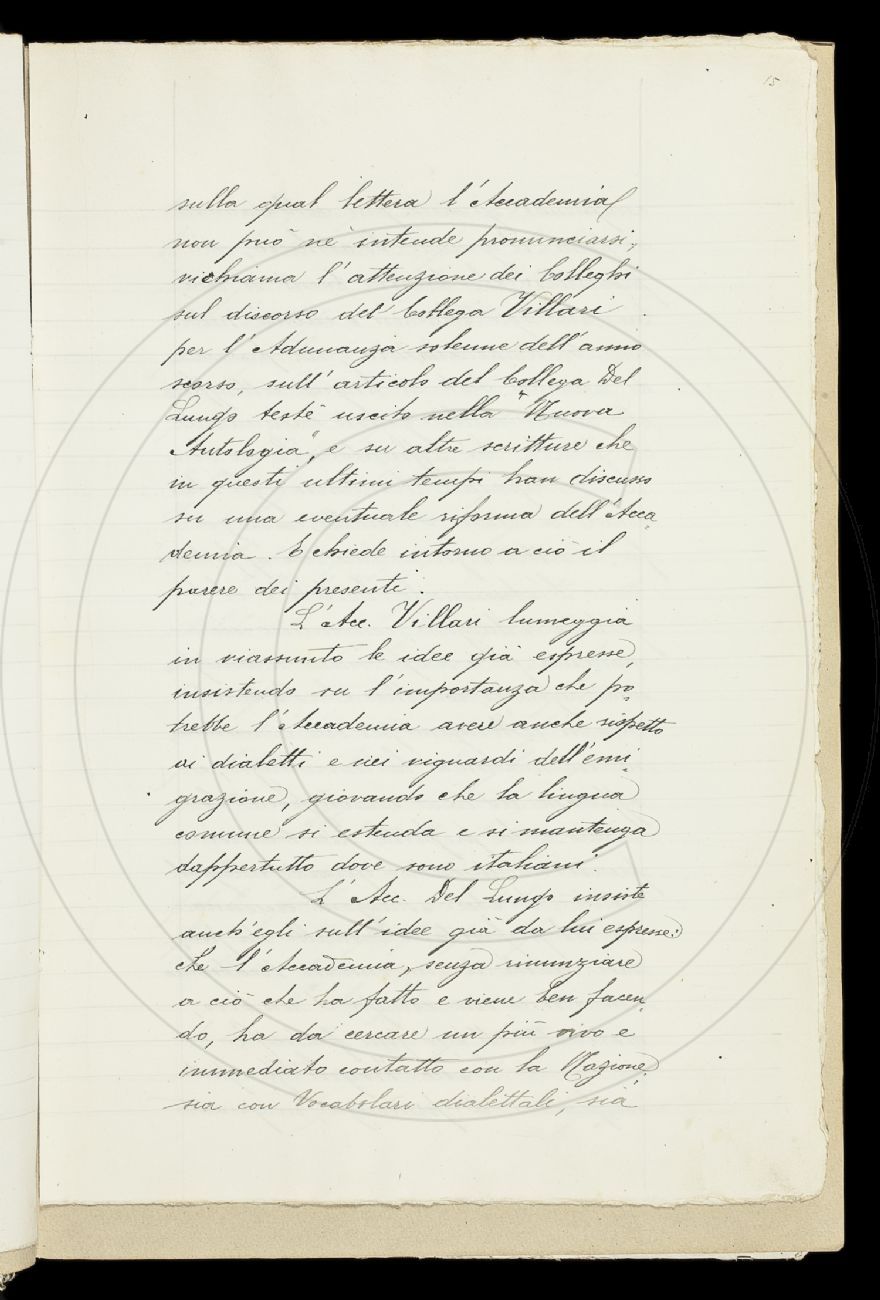 15
sulla qual lettera l'Accademia
non può nè intende pronunciarsi,
richiama l'attenzione dei Colleghi
sul discorso del Collega Villari
per l'Adunanza solenne dell'anno
scorso, sull'articolo del Collega Del
Lungo testè uscito nella "Nuova
Antologia", e su altre scritture che
in questi ultimi tempi han discusso
su una eventuale riforma dell'Acca
demia. E chiede intorno a ciò il
parere dei presenti.
L'Acc. Villari lumeggia
in riassunto le idee già espresse,
insistendo su l'importanza che po
trebbe l'Accademia avere anche rispetto
ai dialetti e nei riguardi dell'emi
grazione, giovando che la lingua
comune si estenda e si mantenga
dappertutto dove sono italiani.
L'Acc. Del Lungo insiste
anch'egli sull'idee già da lui espresse:
che l'Accademia, senza rinunziare
a ciò che ha fatto e viene ben facen
do, ha da cercare un più vivo e
immediato contatto con la Nazione,
sia con Vocabolari dialettali, sia